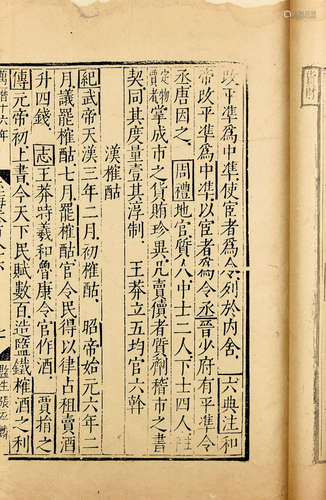 改平準爲中準使宦者爲令列於內舍 六典注和
帝改平準爲中準以宦者爲令丞晉少府有平準令
丞唐因之 周禮地官質人中士二人下士四人
定物賈者掌成市之貨賄珍異凡賣儥者質劑稽市之書
契同其度量壹其淳制 王莽立五均官六斡
漢榷酤
紀武帝天漢三年二月初榷酤 昭帝始元六年二
月議罷榷酤七月罷榷酤官令民得以律占租賣酒
升四錢 志王莽時羲和魯康令官作酒 賈捐之
傳元帝初上書今天下民賦數百造鹽鐵榷酒之利
萬曆十六年